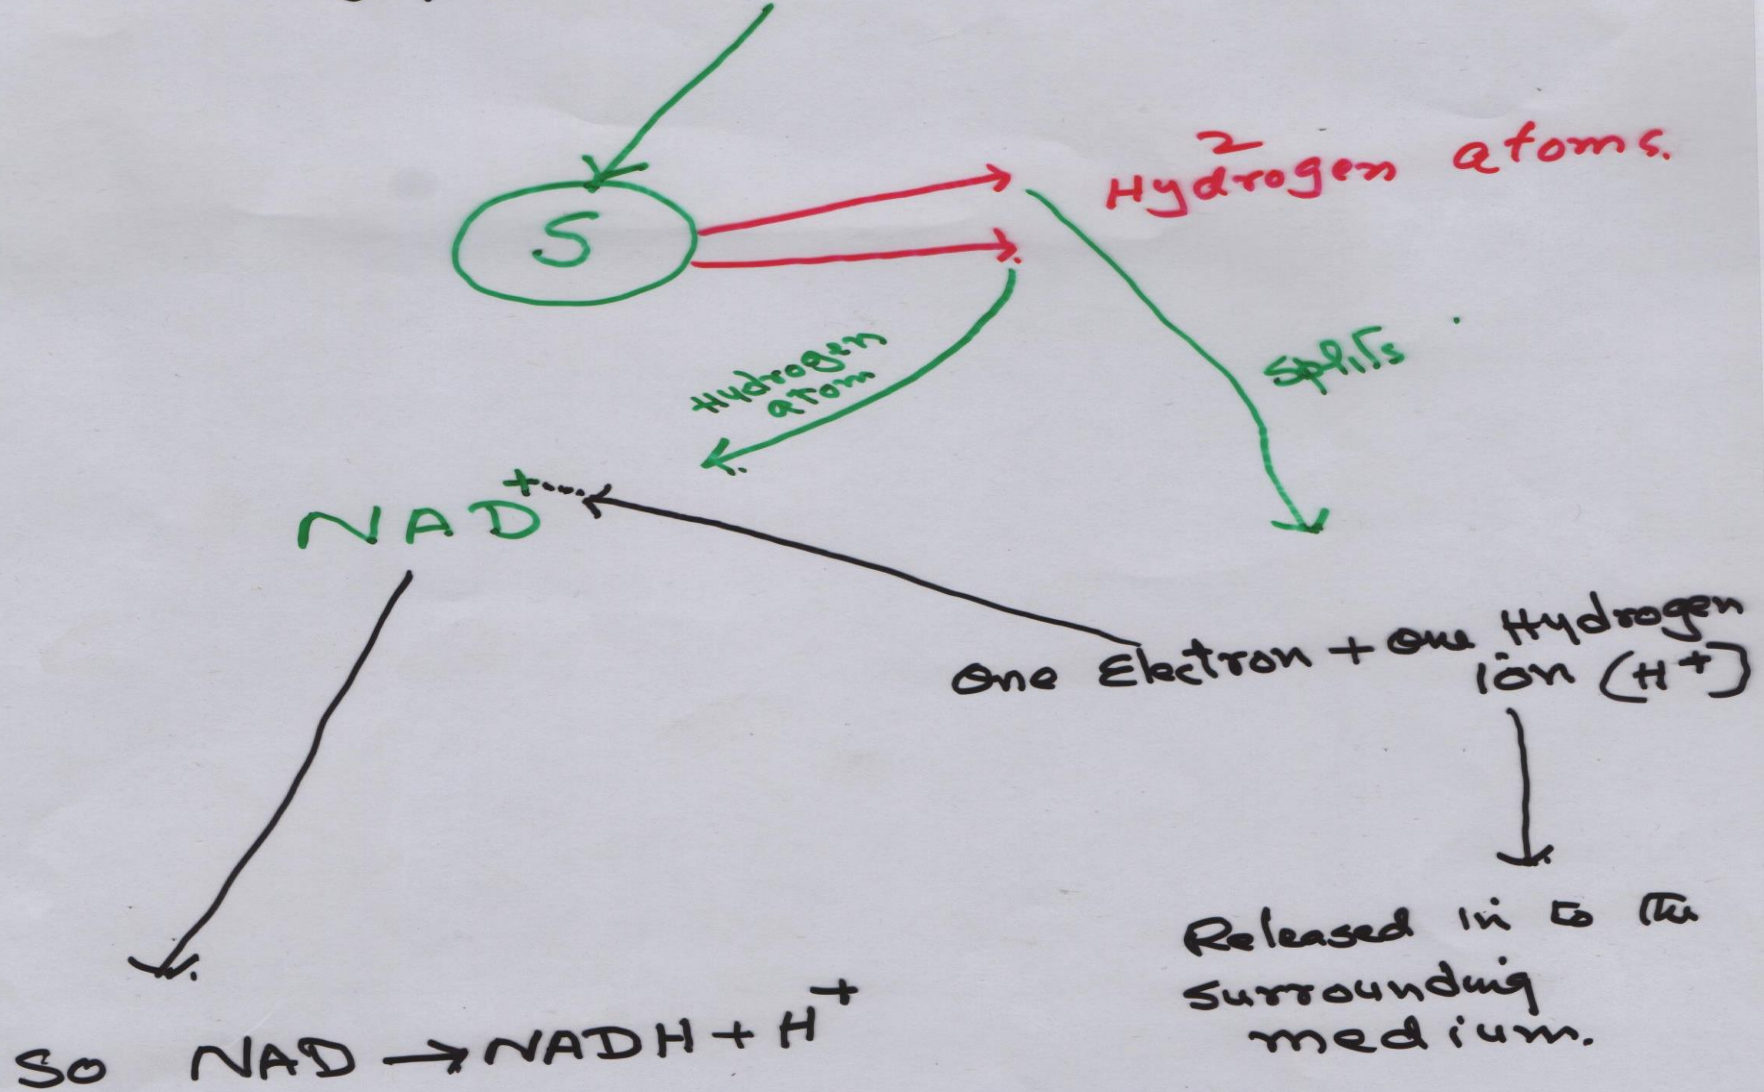 S
2
Hydrogen atoms.
Hydrogen
atom
splits
NAD+
One Electron + One Hydrogen
ion (H+)
Released in to the
surrounding
medium.
So NAD → NADH + H+